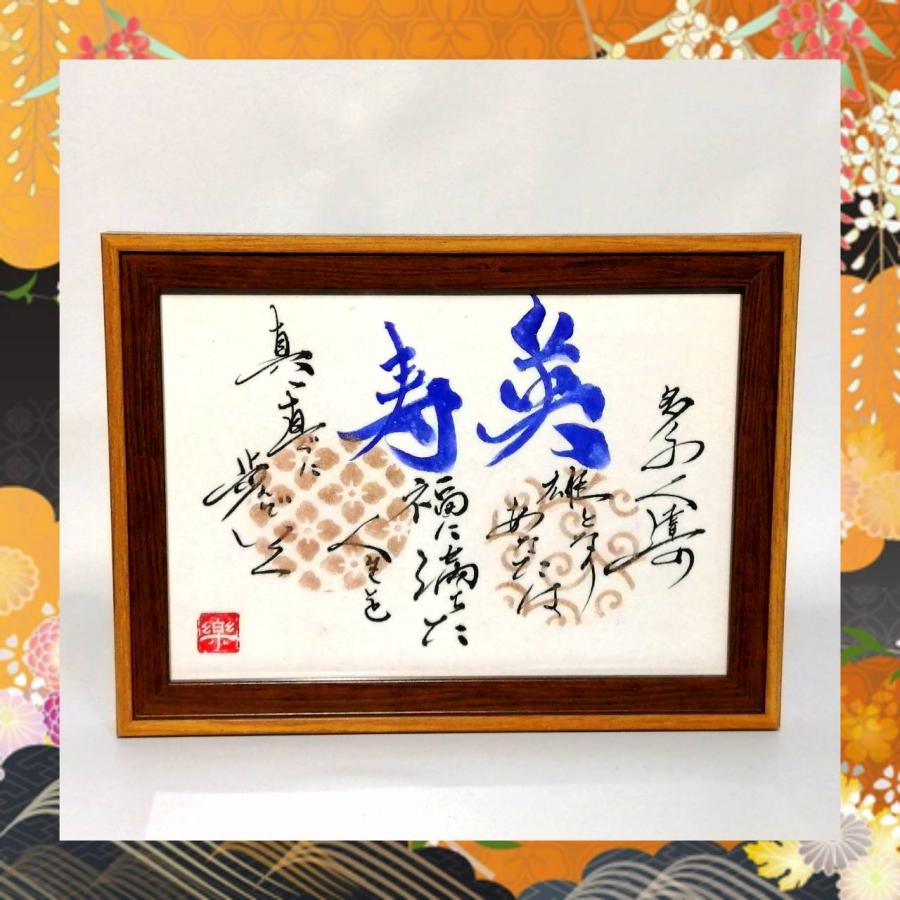 多くの人達の
英雄となり
あなたは
寿福に満ちた
人生を
真っ直ぐに
歩んでいく
樂